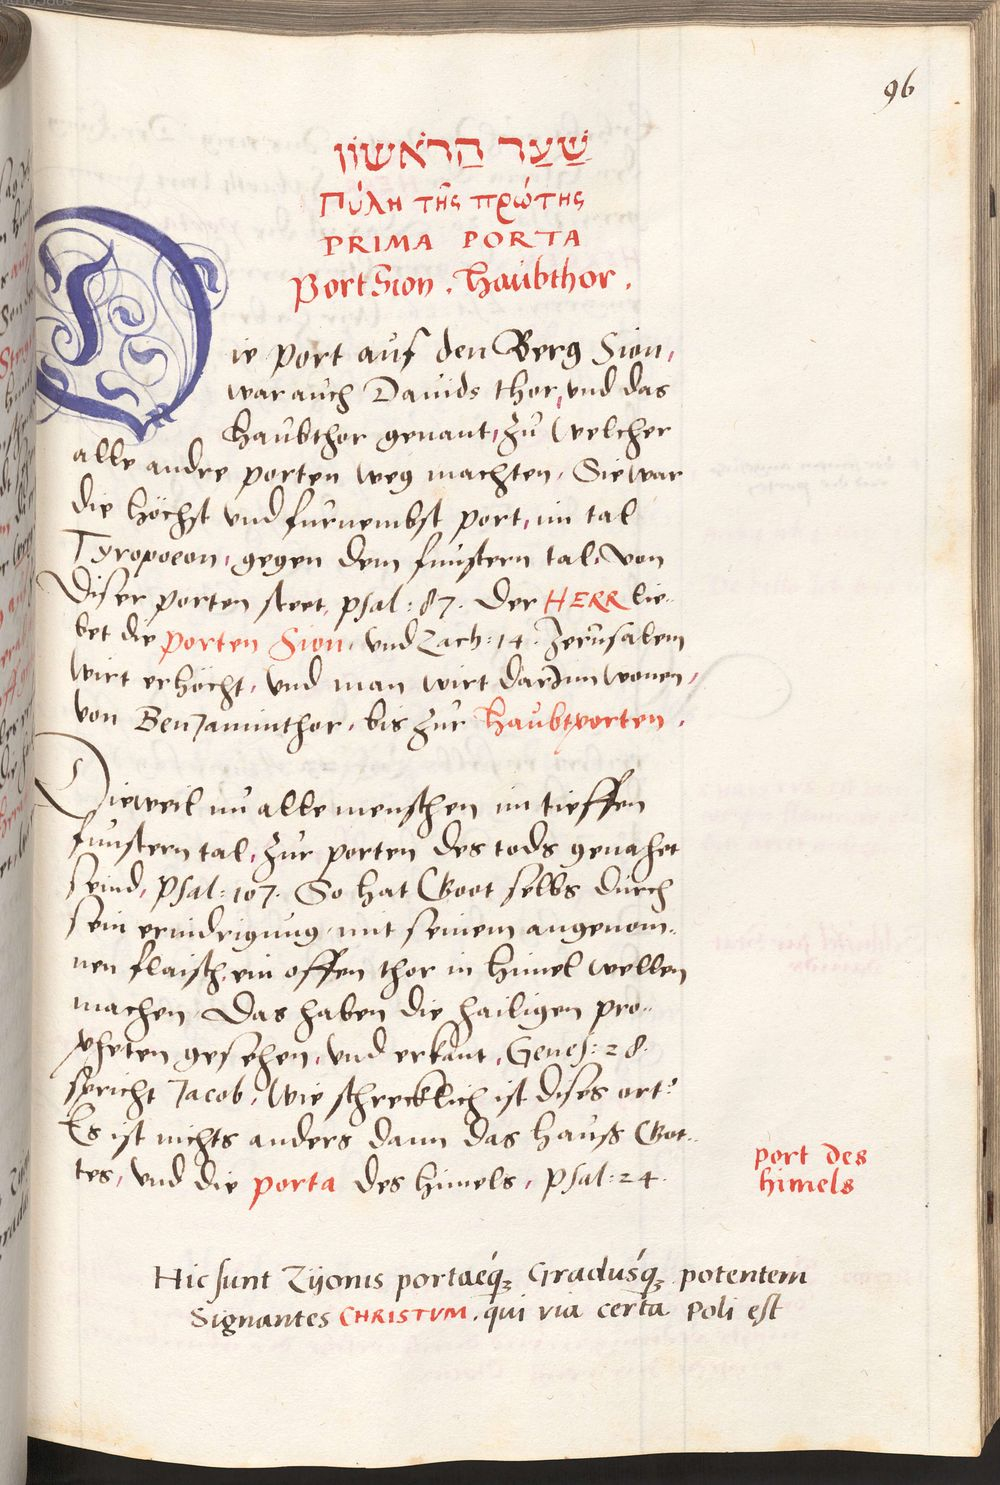 96
שַׁעַר הַרֹאשׁוֹן
Πύλη τῆς πρώτης
PRIMA PORTA
Port Sion . Haubthor .
Die port auf den Berg Sion,
war auch Dauids thor, und das
haubthor genant, zu welcher
alle andre porten weg machten. Sie war
die höchst und furnembst port, im tal
Tyropoeon, gegen dem finstern tal. Von
diser porten steet, psal: 87. Der HERR lie-
bet die porten Sion, und Zach: 14. Jerusalem
wirt erhöcht, und man wirt darinn wonen,
von Benjaminthor, bis zur haubtporten.
Dieweil nu alle menschen im tieffen
finstern tal, zur porten des tods genahet
seind, psal: 107. So hat Goot selbs durch
sein ernidrigung mit seinem angenom-
nen flaisch, ein offen thor in himel wellen
machen. Das haben die hailigen pro-
pheten gesehen, und erkant, Genes: 28.
spricht Jacob, Wie schrecklich ist dises ort?
Es ist nichts anders dann das hauss Got-
tes, und die porta des himels, psal: 24.
port des
himels
Hic sunt Zijonis portaeq́ꝫ Gradusq́ꝫ potentem
Signantes CHRISTUM. qui via certa Poli est